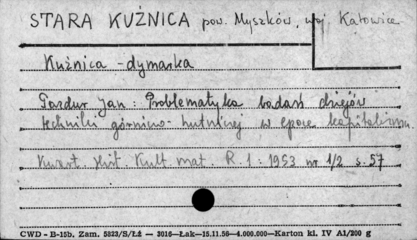 STARA KUŹNICA pow. Myszków, woj. Katowice
Kuźnica - dymarka
Pazdur Jan: Problematyka badań dziejów
techniki górniczo-hutniczej w epoce kapitalizmu
Kwart. Hist. Kult. mat. R. 1: 1953 nr 1/2 s. 57
CWD - B-15b. Zam. 5823/S/Łź — 3016—Łak—15.11.56—4.000.000—Karton kl. IV A1/200 g